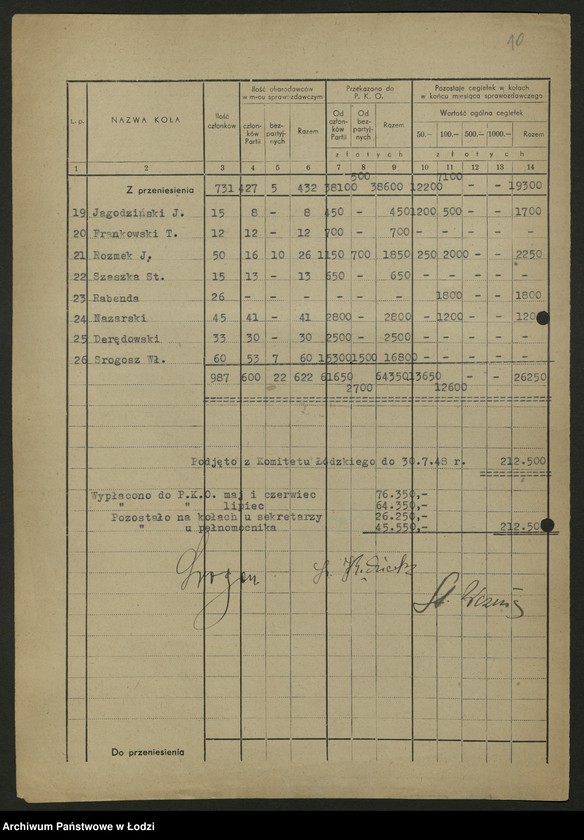 10
L.p. NAZWA KOŁA Ilość członków Ilość ofiarodawców w m-cu sprawozdawczym Przekazano do P. K. O. Pozostaje cegiełek w kołach w końcu miesiąca sprawozdawczego
członków Partii bezpartyjnych Razem Od członków Partii Od bezpartyjnych Razem Wartość ogólna cegiełek
50.- 100.- 500.- 1000.- Razem
złotych złotych
1 2 3 4 5 6 7 8 9 10 11 12 13 14
500 7100
Z przeniesienia 731 427 5 432 38100 38600 12200 - - 19300
19 Jagodziński J. 15 8 - 8 450 - 450 1200 500 - - 1700
20 Frankowski T. 12 12 - 12 700 - 700 - - - - -
21 Rozmek J. 50 16 10 26 1150 700 1850 250 2000 - - 2250
22 Szaszka St. 15 13 - 13 650 - 650 - - - - -
23 Rabenda 26 - - - - - - 1800 - - 1800
24 Nazarski 45 41 - 41 2800 - 2800 - 1200 - - 120
25 Derędowski 33 30 - 30 2500 - 2500 - - - - -
26 Srogosz Wł. 60 53 7 60 15300 1500 16800 - - - - -
987 600 22 622 61650 64350 13650 26250
2700 12600
Podjęto z Komitetu Łódzkiego do 30.7.48 r. 212.500
Wypłacono do P.K.O. maj i czerwiec 76.350,-
" " lipiec 64.350,-
Pozostało na kołach u sekretarzy 26.250,-
" u pełnomocnika 45.550,- 212.500
Do przeniesienia
Archiwum Państwowe w Łodzi